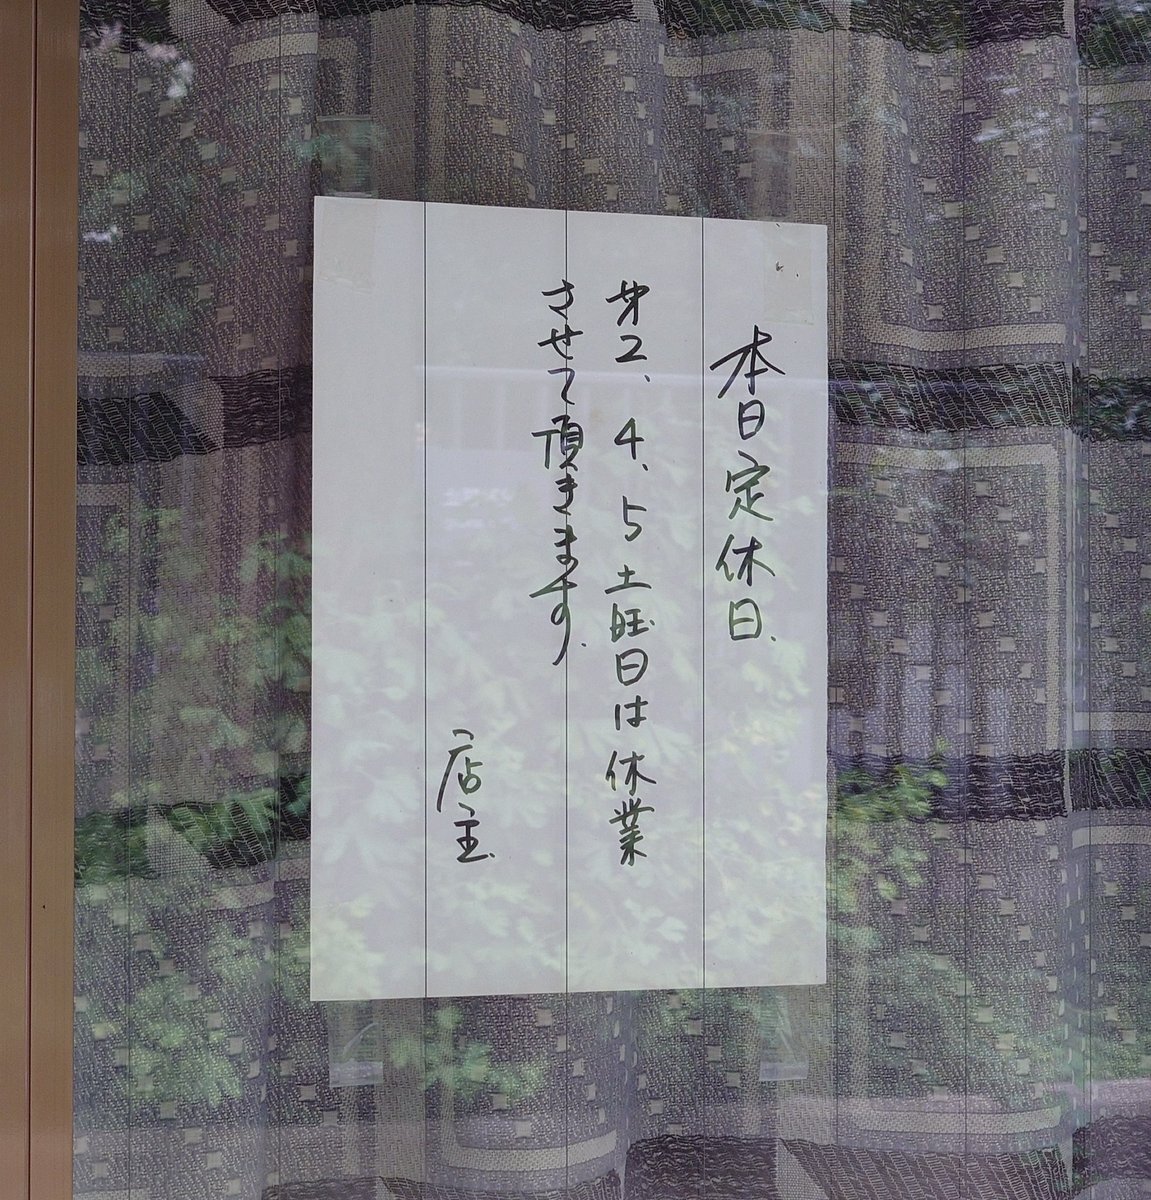 本日定休日、
㐧2、4、5土旺日は休業
させて頂きます。
店主